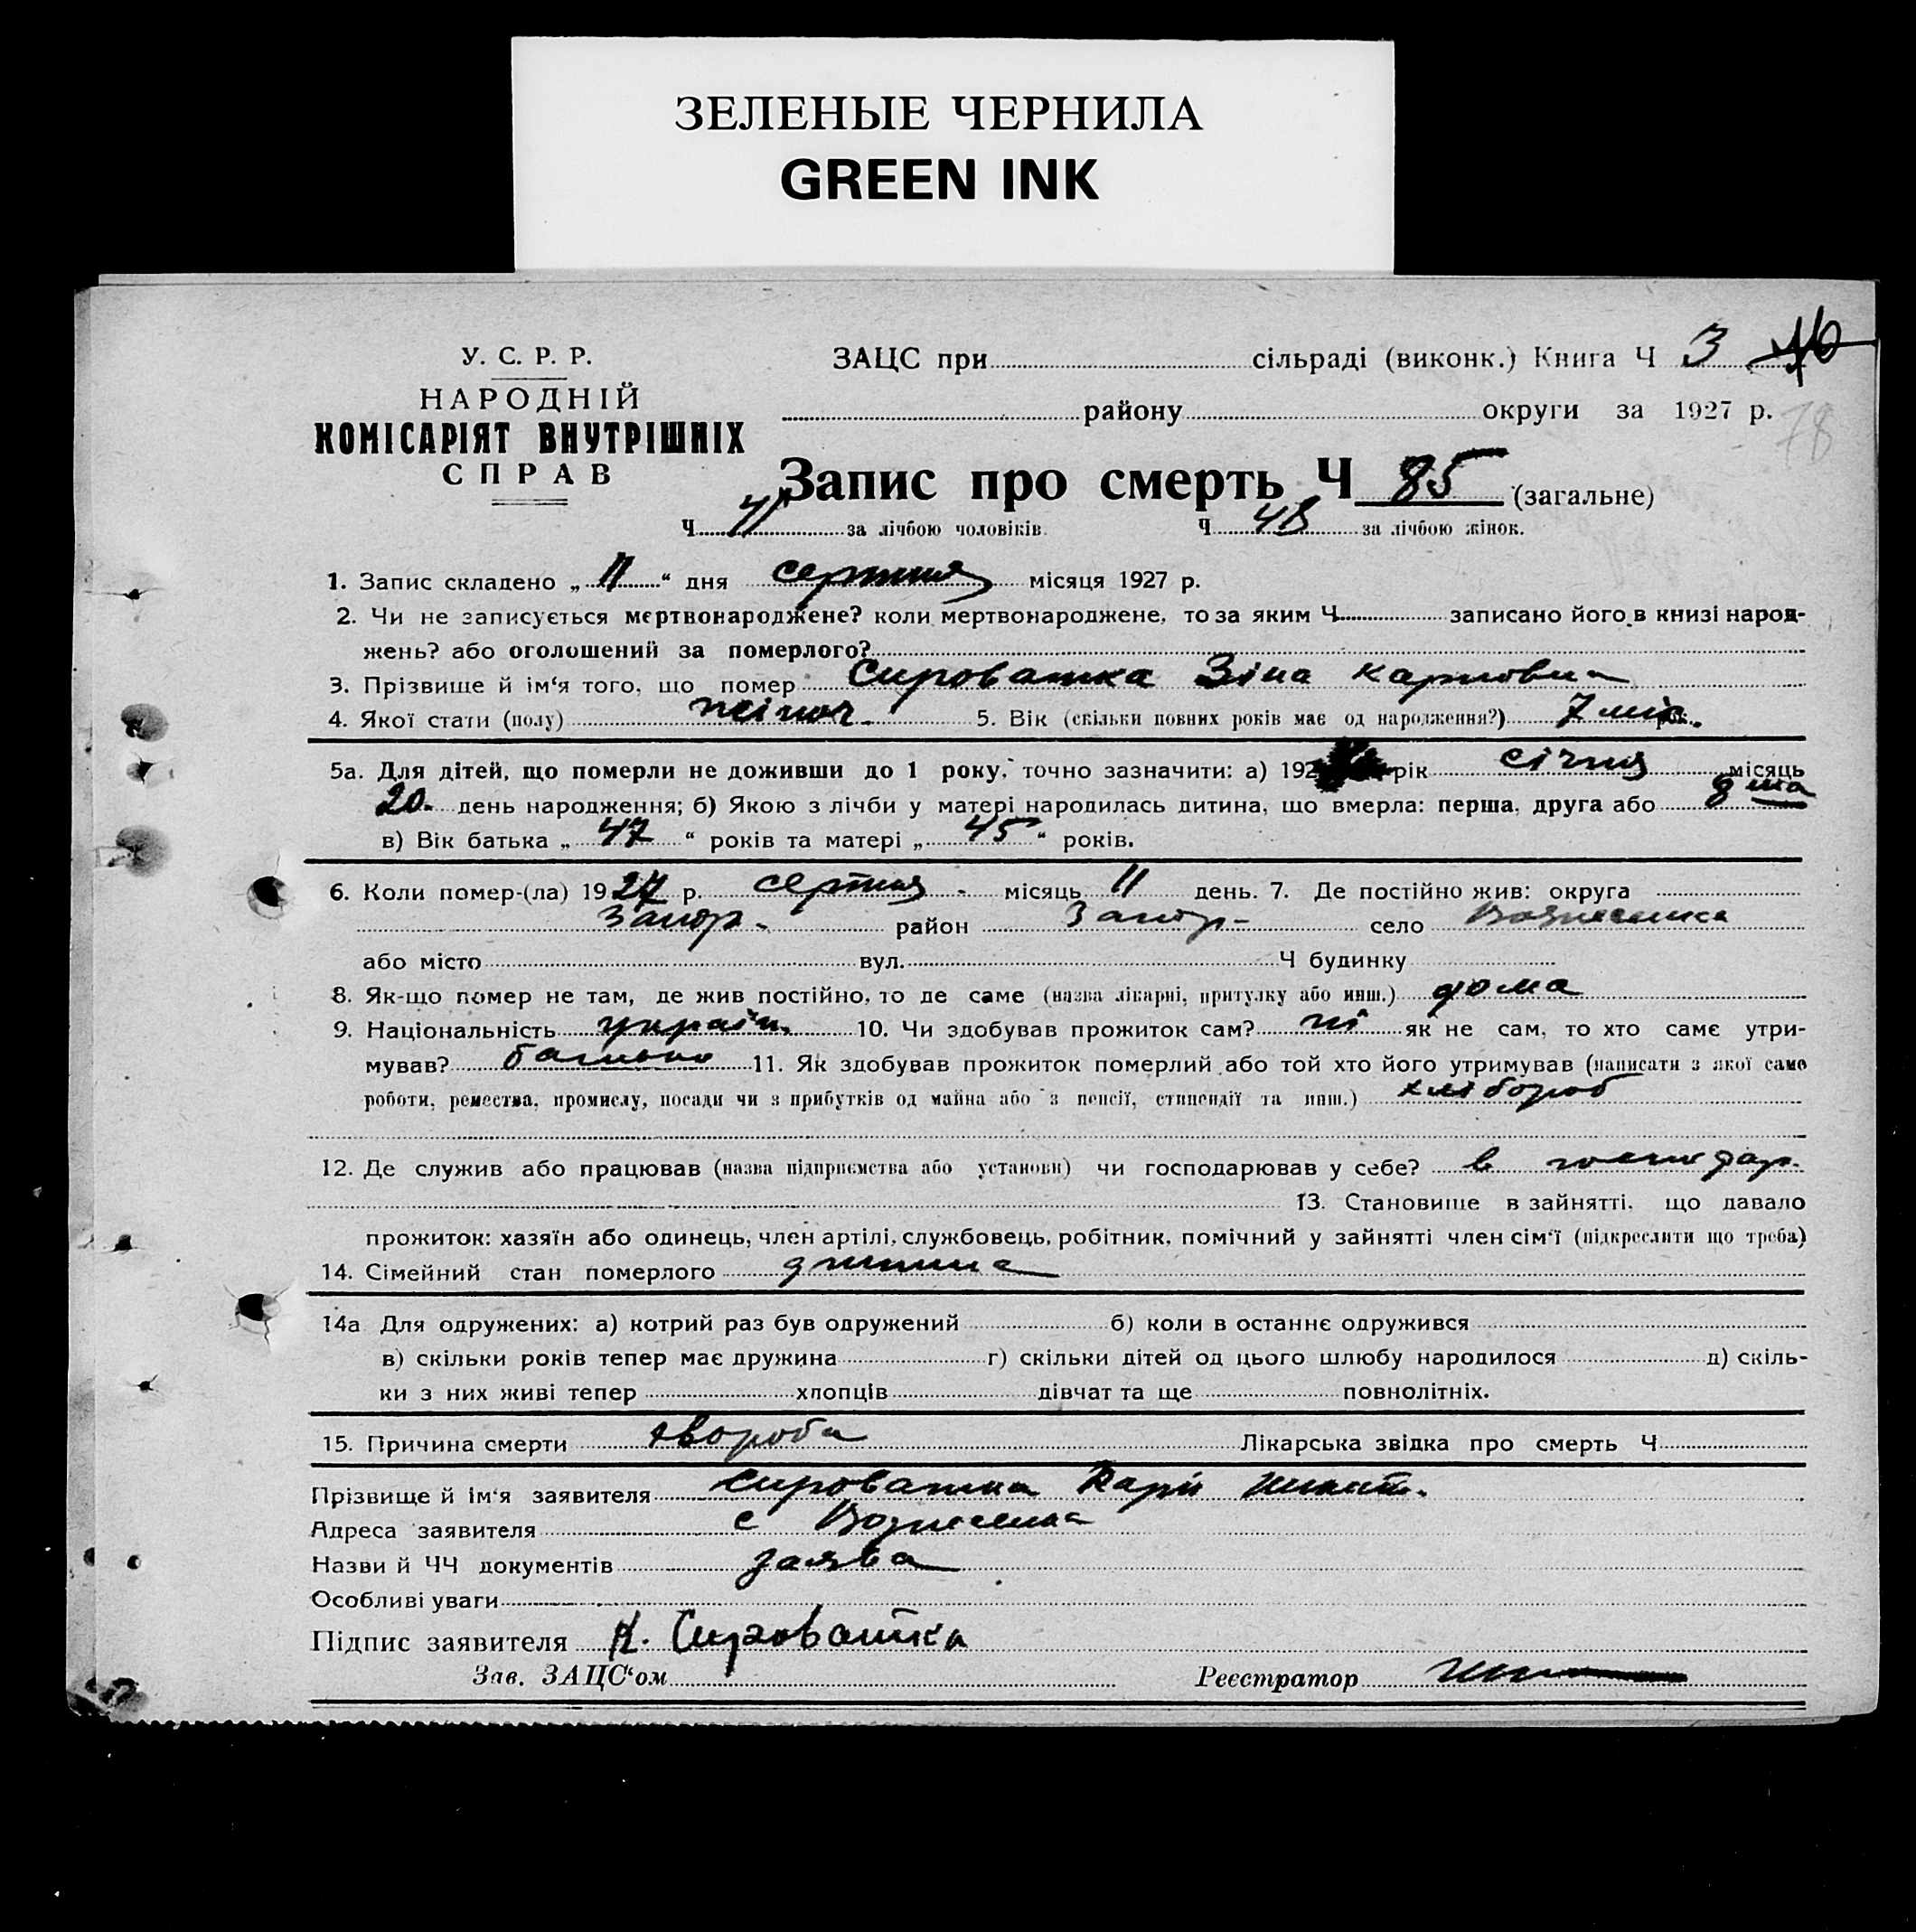 ЗЕЛЕНЫЕ ЧЕРНИЛА
GREEN INK
У. С. Р. Р.
НАРОДНІЙ
КОМІСАРІЯТ ВНУТРІШНІХ
СПРАВ
ЗАЦС при сільраді (виконк.) Книга Ч 3
району округи за 1927 р.
78
Запис про смерть Ч 85 (загальне)
Ч за лічбою чоловіків. Ч за лічбою жінок.
1. Запис складено „ 11 “ дня серпня місяця 1927 р.
2. Чи не записується мертвонароджене? коли мертвонароджене, то за яким Ч. записано його в книзі народ-
жень? або оголошений за померлого?
3. Прізвище й ім‘я того, що помер Сироватка Зіна Карповна
4. Якої стати (полу) жіноч. 5. Вік (скільки повних років має од народження?) 7 міс.
5а. Для дітей, що померли не доживши до 1 року, точно зазначити: а) 192 рік січня місяць
20 день народження; б) Якою з лічби у матері народилась дитина, що вмерла: перша, друга або
в) Вік батька „ 47 “ років та матері „ 45 “ років.
6. Коли помер-(ла) 1927 р. серпня місяць 11 день. 7. Де постійно жив: округа
Запор. район Запор. село Вознесенка
або місто вул. Ч будинку
8. Як-що помер не там, де жив постійно, то де саме (назва лікарні, притулку або инш.) дома
9. Національність україн. 10. Чи здобував прожиток сам? ні як не сам, то хто саме утри-
мував? батько 11. Як здобував прожиток померлий або той хто його утримував (написати з якої саме
роботи, ремества, промислу, посади чи з прибутків од майна або з пенсії, стипендії та инш.) хлібороб
12. Де служив або працював (назва підприємства або установи) чи господарював у себе? в господар.
13. Становище в зайнятті, що давало
прожиток: хазяїн або одинець, член артілі, службовець, робітник, помічний у зайнятті член сім‘ї (підкреслити що треба)
14. Сімейний стан померлого дитина
14а Для одружених: а) котрий раз був одружений б) коли в останнє одружився
в) скільки років тепер має дружина г) скільки дітей од цього шлюбу народилося д) скіль-
ки з них живі тепер хлопців дівчат та ще повнолітніх.
15. Причина смерти хвороба Лікарська звідка про смерть Ч
Прізвище й ім‘я заявителя Сироватка Карп Микит.
Адреса заявителя с Вознесенка
Назви й ЧЧ документів заява
Особливі уваги
Підпис заявителя К. Сироватка
Зав. ЗАЦС‘ом Реєстратор